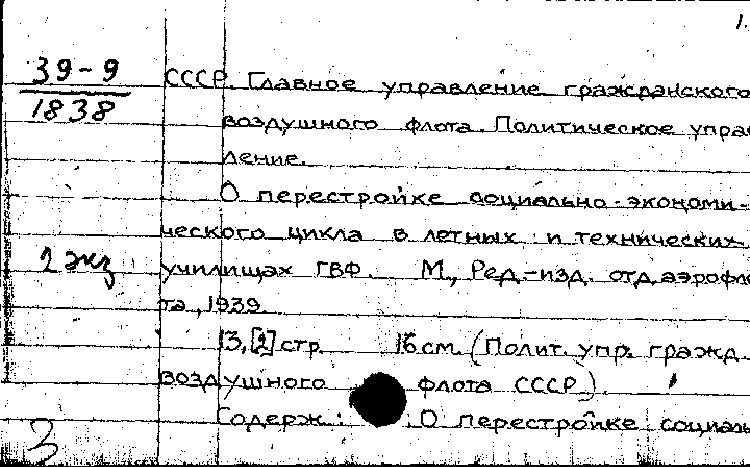 1.
39-9 СССР. Главное управление гражданского
1838 воздушного флота. Политическое управ
ление.
О перестройке социально-экономи-
ческого цикла в летных и технических
2 экз училищах ГВФ. М., Ред.-изд. отд. аэрофло
та, 1939
13,[2] стр. 16 см. (Полит. упр. гражд.
воздушного флота СССР).
Содерж.: О перестройке социаль
3